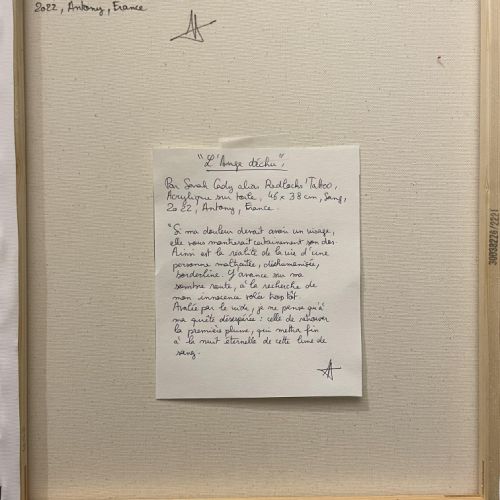 2022, Antony, France
"L'Ange déchu",
Par Sarah Cady alias Redlocks Tattoo,
Acrylique sur toile, 46 x 38 cm, Sang,
2022, Antony, France.
"Si ma douleur devait avoir un visage,
elle vous montrerait certainement son dos.
Ainsi est la réalité de la vie d'une
personne maltraitée, déshumanisée,
borderline. J'avance sur ma
sombre route, à la recherche de
mon innocence volée trop tôt.
Avalée par le vide, je ne pense qu'à
ma quête désespérée : celle de retrouver
la première plume, qui mettra fin
à la nuit éternelle de cette lune de
sang.